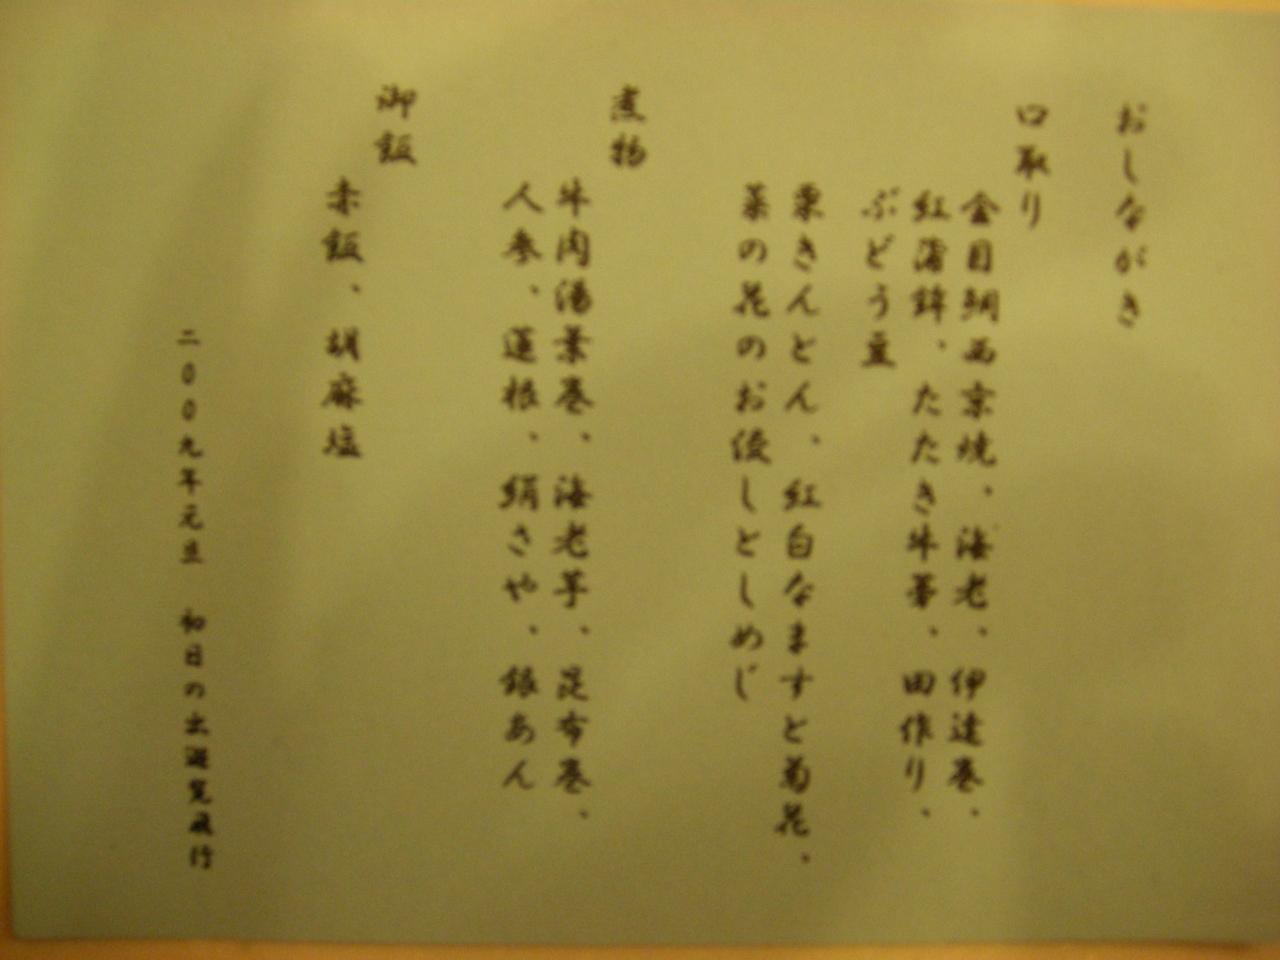 おしながき
口取り
金目鯛西京焼、海老、伊達巻、
紅蒲鉾、たたき牛蒡、田作り、
ぶどう豆
栗きんとん、紅白なますと菊花、
菜の花のお浸しとしめじ
煮物
牛肉湯葉巻、海老芋、昆布巻、
人参、蓮根、絹さや、銀あん
御飯
赤飯、胡麻塩
二〇〇九年元旦　初日の出遊覧飛行